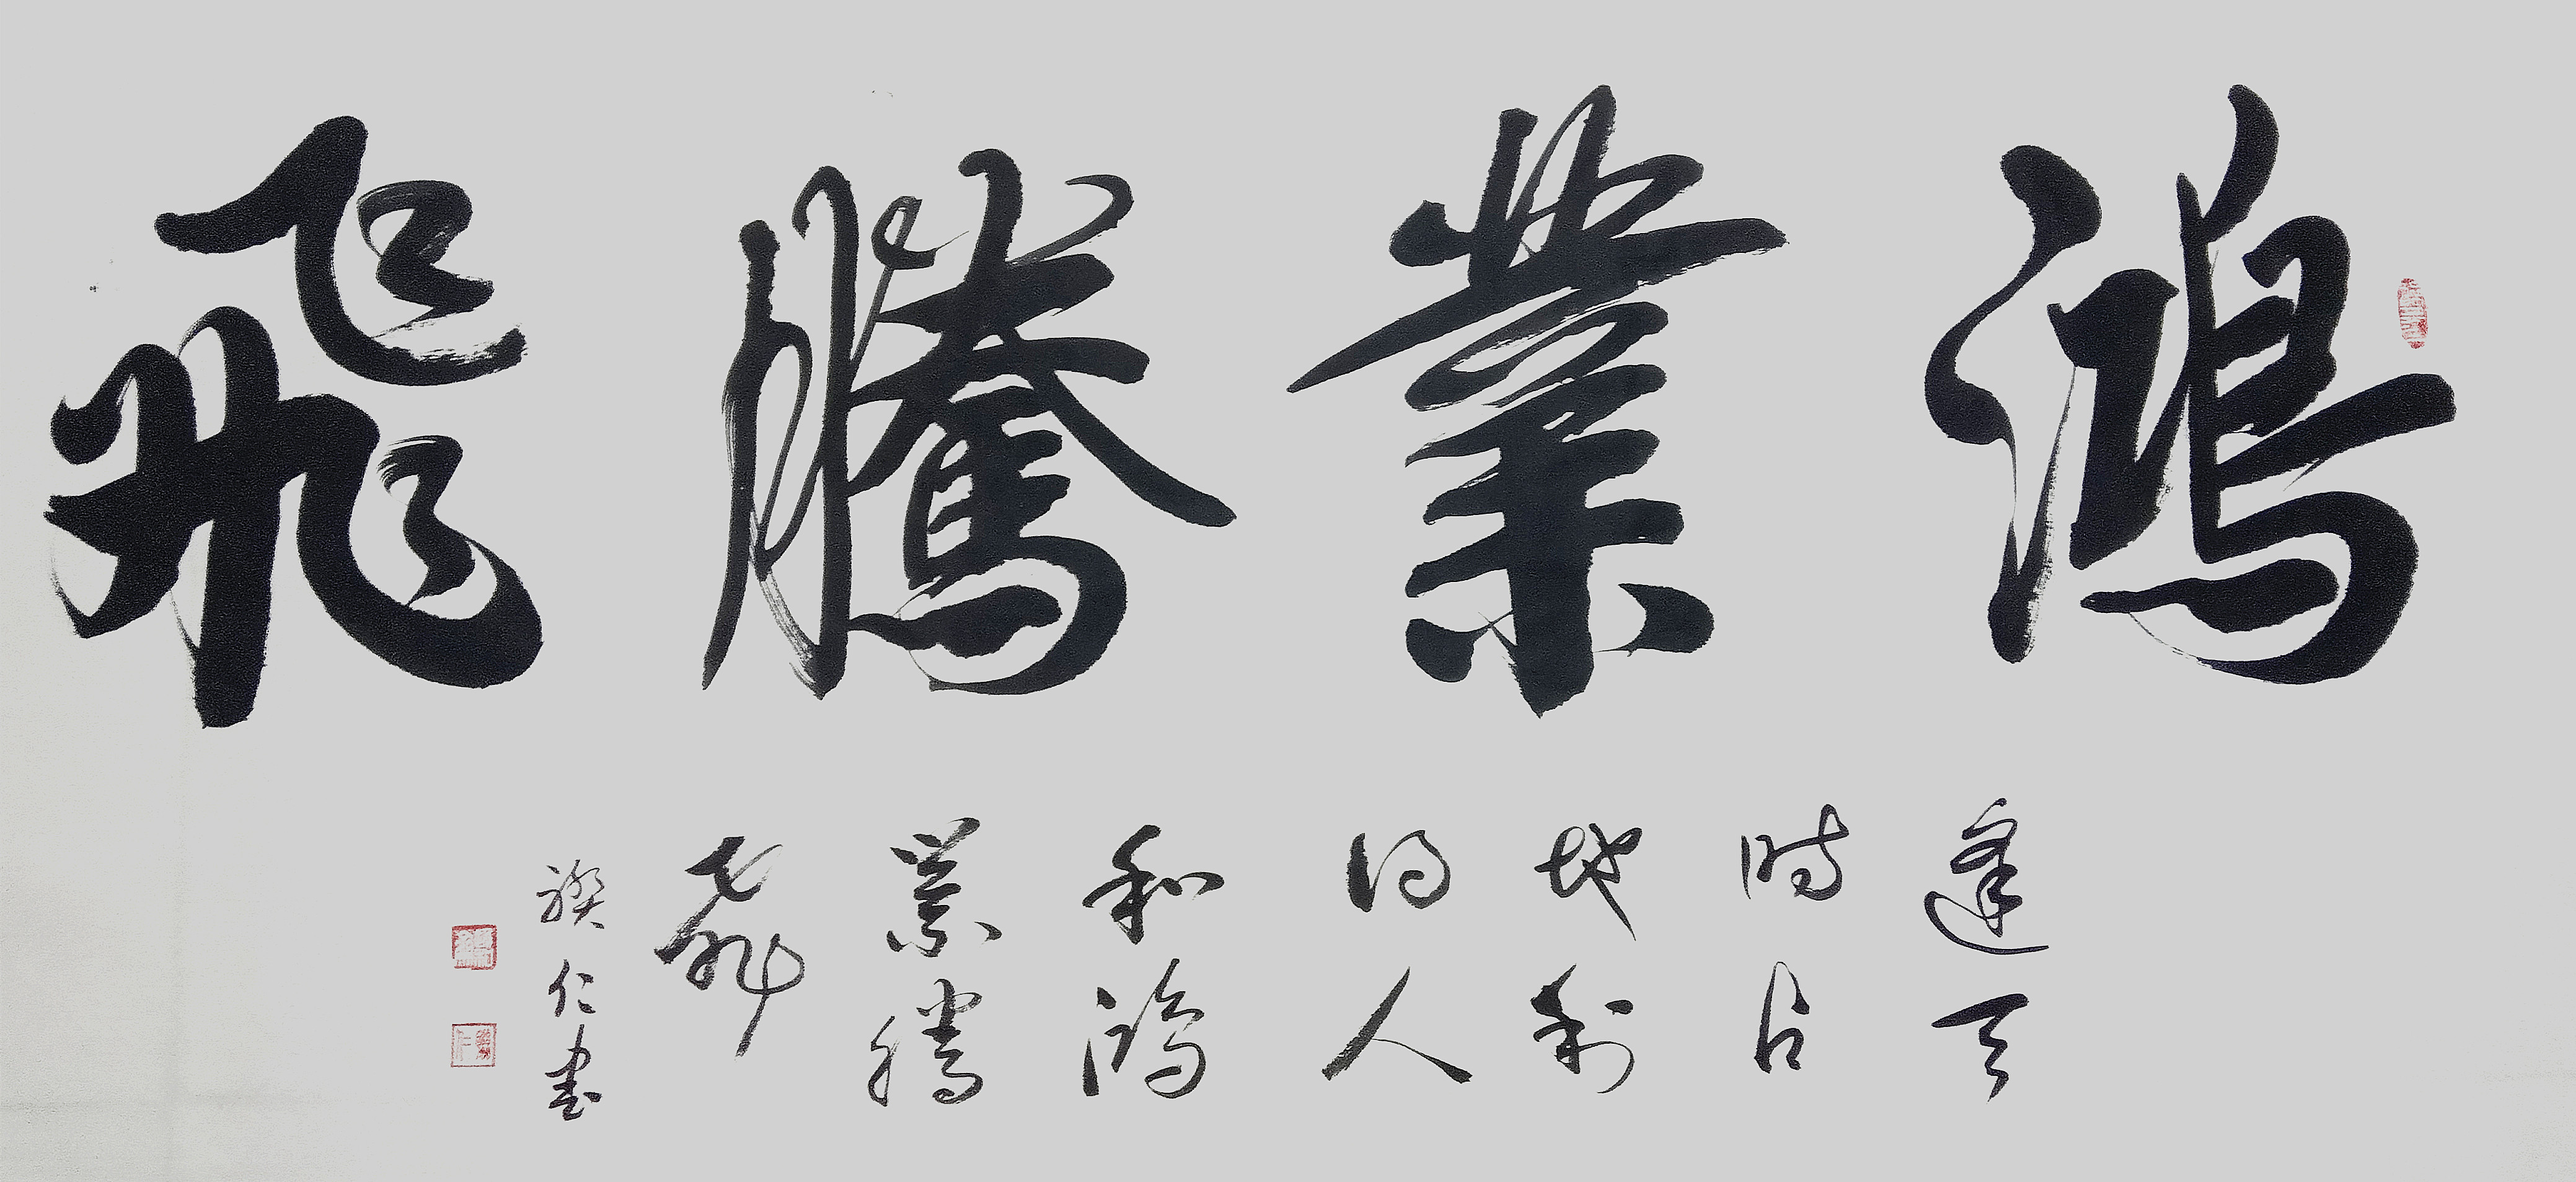 鴻業騰飛
逢天
時占
地利
得人
和鴻
業騰
飛
仁書